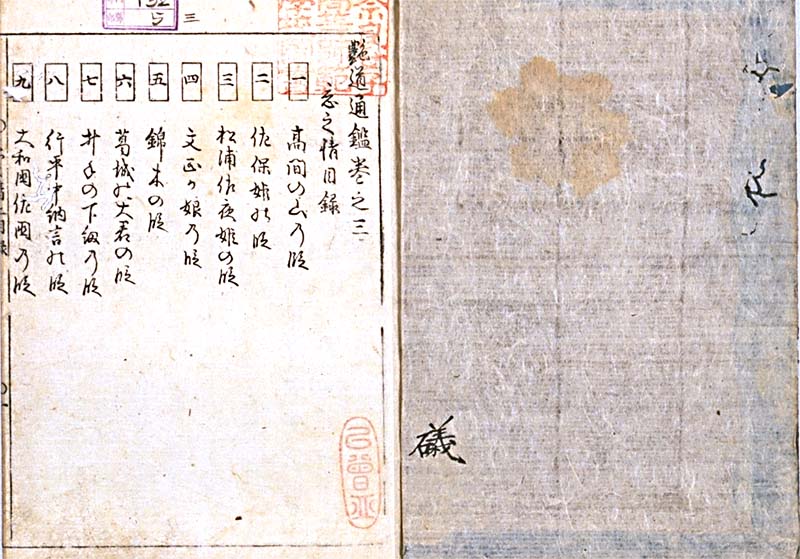 礒
艷道通鑑巻之三
之情目録
一 高間の山乃段
二 佐保姫の段
三 松浦佐夜姫の段
四 文正が娘乃段
五 錦木の段
六 葛城の大君の段
七 井手の下紐乃段
八 行平中納言の段
九 大和国佐国乃段
三